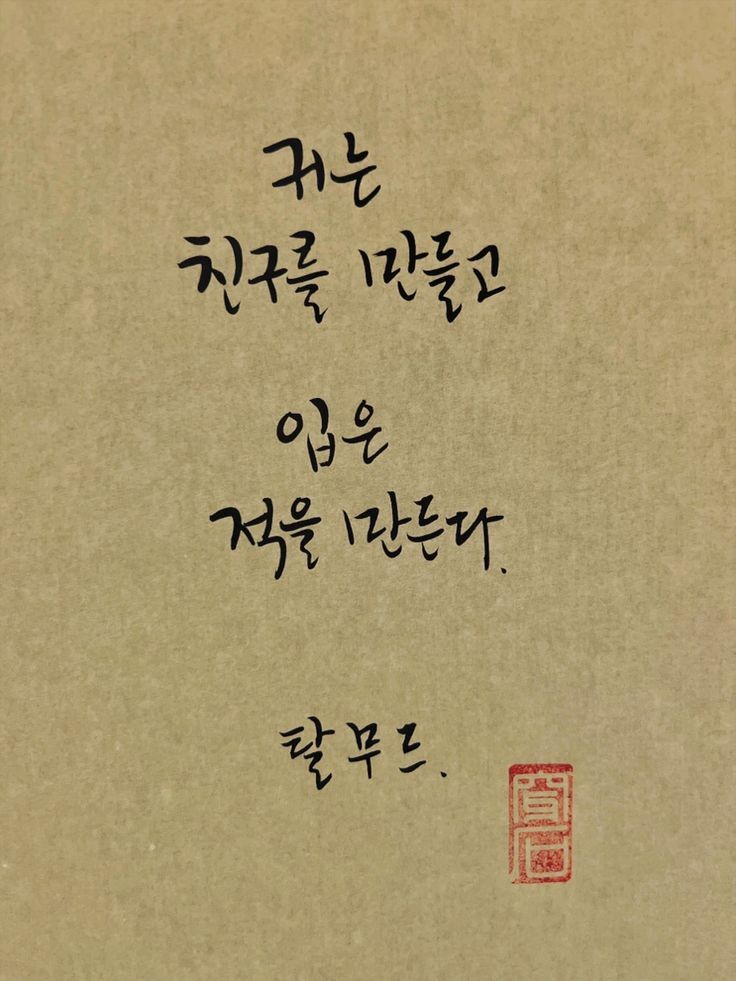 귀는
친구를 만들고
입은
적을 만든다.
탈무드.